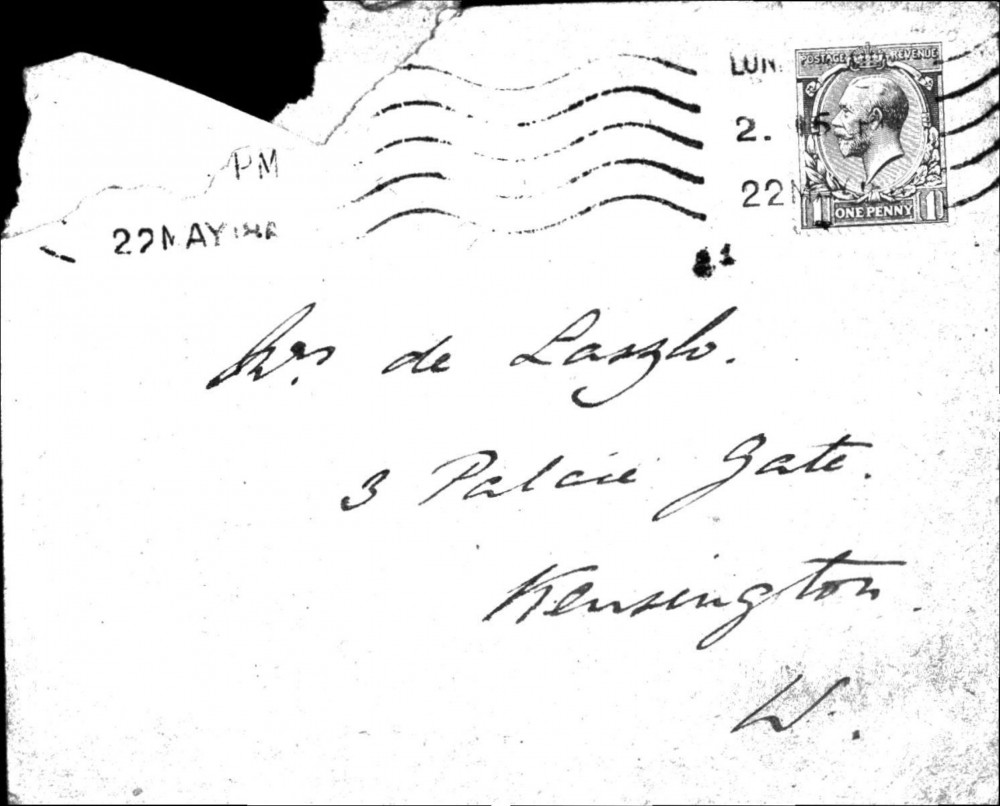 LUN
POSTAGE REVENUE
2. 15
PM
22 MAY
22 M
1 ONE PENNY 1
Mrs de Laszlo.
3 Palace Gate.
Kensington.
W.